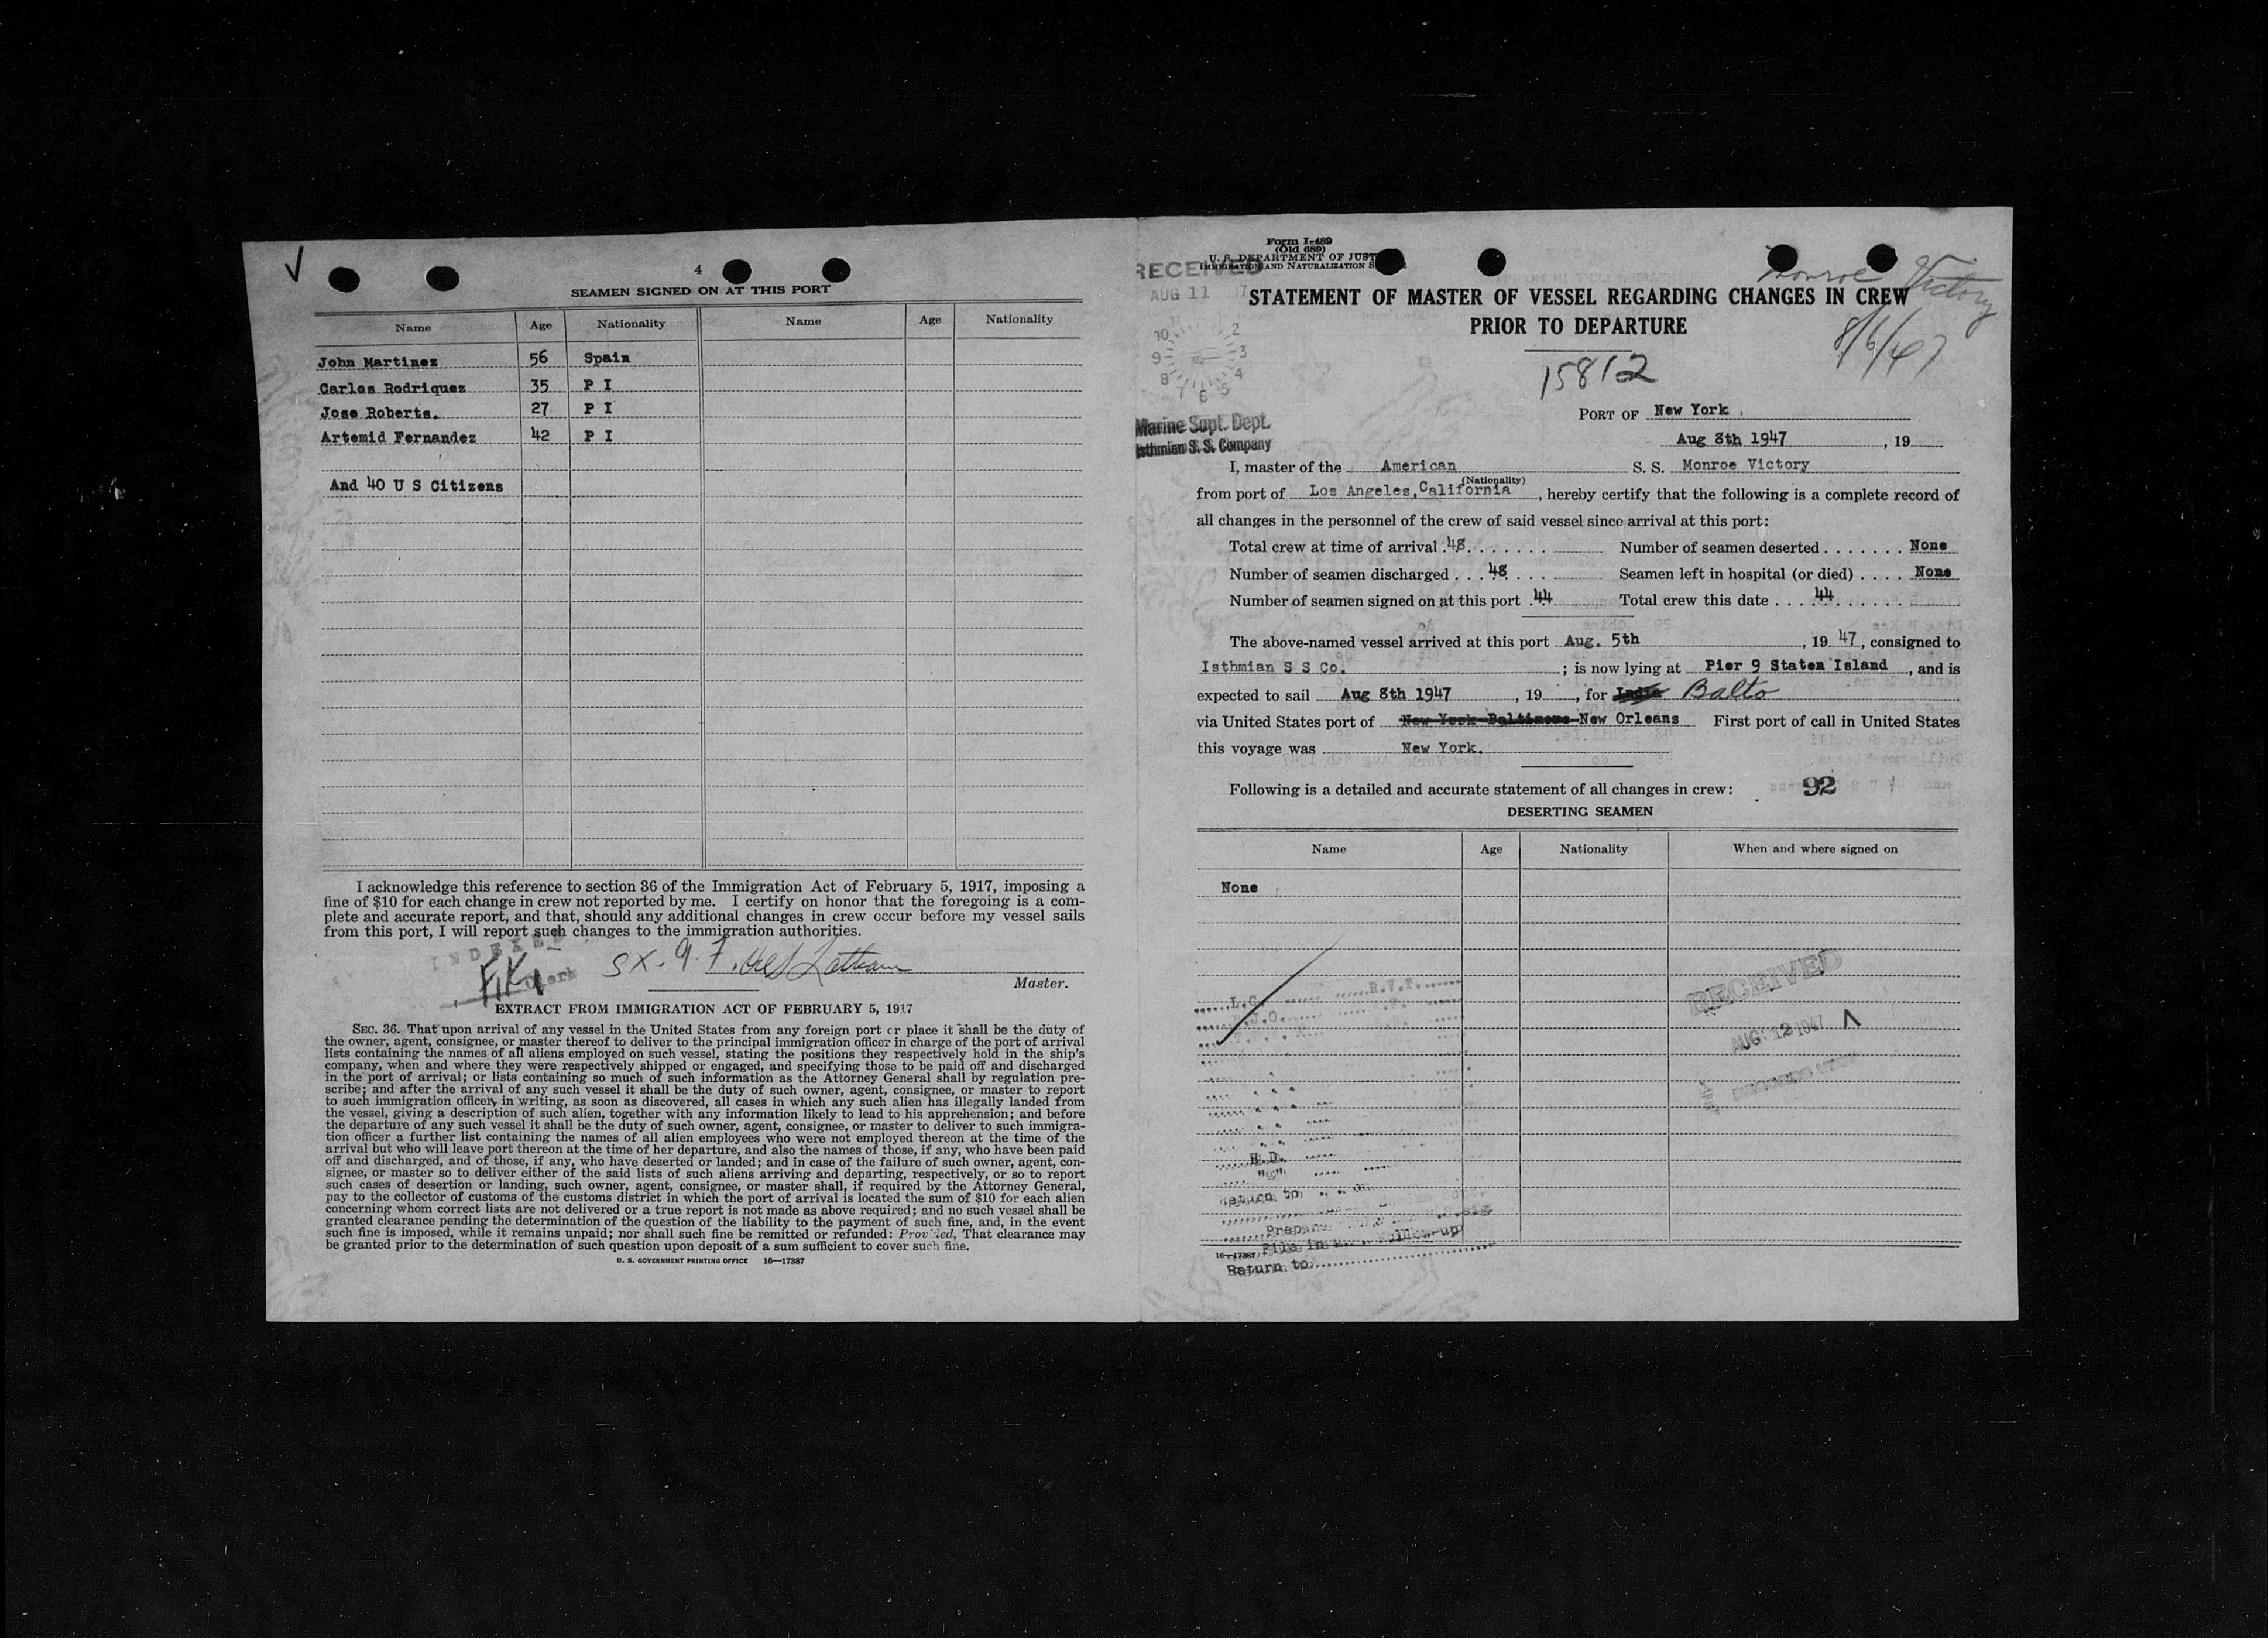 4
SEAMEN SIGNED ON AT THIS PORT
Name Age Nationality Name Age Nationality
John Martinez 56 Spain
Carlos Rodriquez 35 P I
Jose Roberts. 27 P I
Artemid Fernandez 42 P I
And 40 U S Citizens
I acknowledge this reference to section 36 of the Immigration Act of February 5, 1917, imposing a
fine of $10 for each change in crew not reported by me. I certify on honor that the foregoing is a com-
plete and accurate report, and that, should any additional changes in crew occur before my vessel sails
from this port, I will report such changes to the immigration authorities.
INDEXED
Clerk
Master.
EXTRACT FROM IMMIGRATION ACT OF FEBRUARY 5, 1917
SEC. 36. That upon arrival of any vessel in the United States from any foreign port or place it shall be the duty of
the owner, agent, consignee, or master thereof to deliver to the principal immigration officer in charge of the port of arrival
lists containing the names of all aliens employed on such vessel, stating the positions they respectively hold in the ship's
company, when and where they were respectively shipped or engaged, and specifying those to be paid off and discharged
in the port of arrival; or lists containing so much of such information as the Attorney General shall by regulation pre-
scribe; and after the arrival of any such vessel it shall be the duty of such owner, agent, consignee, or master to report
to such immigration officer, in writing, as soon as discovered, all cases in which any such alien has illegally landed from
the vessel, giving a description of such alien, together with any information likely to lead to his apprehension; and before
the departure of any such vessel it shall be the duty of such owner, agent, consignee, or master to deliver to such immigra-
tion officer a further list containing the names of all alien employees who were not employed thereon at the time of the
arrival but who will leave port thereon at the time of her departure, and also the names of those, if any, who have been paid
off and discharged, and of those, if any, who have deserted or landed; and in case of the failure of such owner, agent, con-
signee, or master so to deliver either of the said lists of such aliens arriving and departing, respectively, or so to report
such cases of desertion or landing, such owner, agent, consignee, or master shall, if required by the Attorney General,
pay to the collector of customs of the customs district in which the port of arrival is located the sum of $10 for each alien
concerning whom correct lists are not delivered or a true report is not made as above required; and no such vessel shall be
granted clearance pending the determination of the question of the liability to the payment of such fine, and, in the event
such fine is imposed, while it remains unpaid; nor shall such fine be remitted or refunded: Provided, That clearance may
be granted prior to the determination of such question upon deposit of a sum sufficient to cover such fine.
U. S. GOVERNMENT PRINTING OFFICE 16—17387
Form I-489
(Old 689)
U. S. DEPARTMENT OF JUST
IMMIGRATION AND NATURALIZATION S
RECEIVED
AUG 11
Monroe Victory
8/6/47
STATEMENT OF MASTER OF VESSEL REGARDING CHANGES IN CREW
PRIOR TO DEPARTURE
15812
Marine Supt. Dept.
Isthmian S. S. Company
PORT OF New York
Aug 8th 1947, 19
I, master of the American S. S. Monroe Victory
(Nationality)
from port of Los Angeles, California, hereby certify that the following is a complete record of
all changes in the personnel of the crew of said vessel since arrival at this port:
Total crew at time of arrival 48 Number of seamen deserted None
Number of seamen discharged 48 Seamen left in hospital (or died) None
Number of seamen signed on at this port 44 Total crew this date 44
The above-named vessel arrived at this port Aug. 5th, 1947, consigned to
Isthmian S S Co.; is now lying at Pier 9 Staten Island, and is
expected to sail Aug 8th 1947, 19, for India Balto
via United States port of New York Baltimore New Orleans First port of call in United States
this voyage was New York.
Following is a detailed and accurate statement of all changes in crew: 92
DESERTING SEAMEN
Name Age Nationality When and where signed on
None
RECEIVED
AUG 12 1947
L.C. R.V.F.
H.D.
Return to
File in
16—17387
Return to